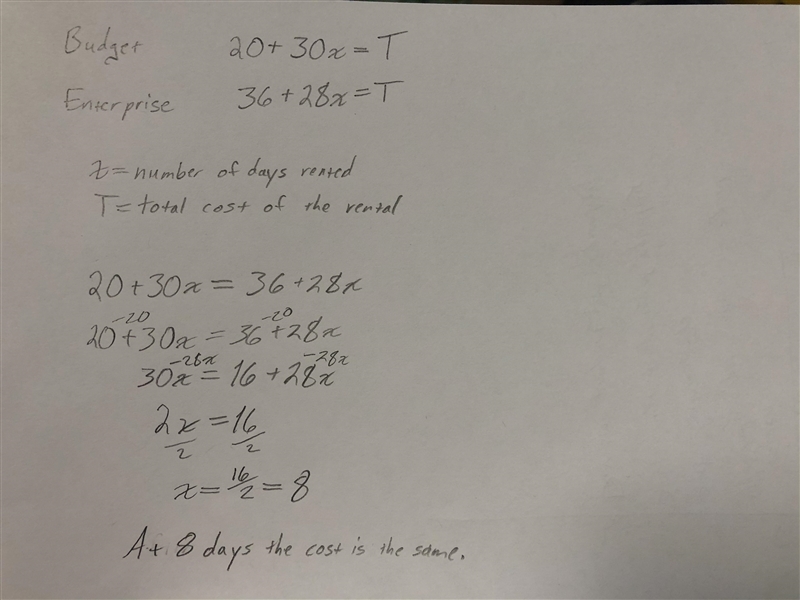 Budget 20 + 30x = T
Enterprise 36 + 28x = T
x = number of days rented
T = total cost of the rental
20 + 30x = 36 + 28x
-20 -20
20 + 30x = 36 + 28x
-28x -28x
30x = 16 + 28x
2x = 16
2 2
x = 16/2 = 8
At 8 days the cost is the same.